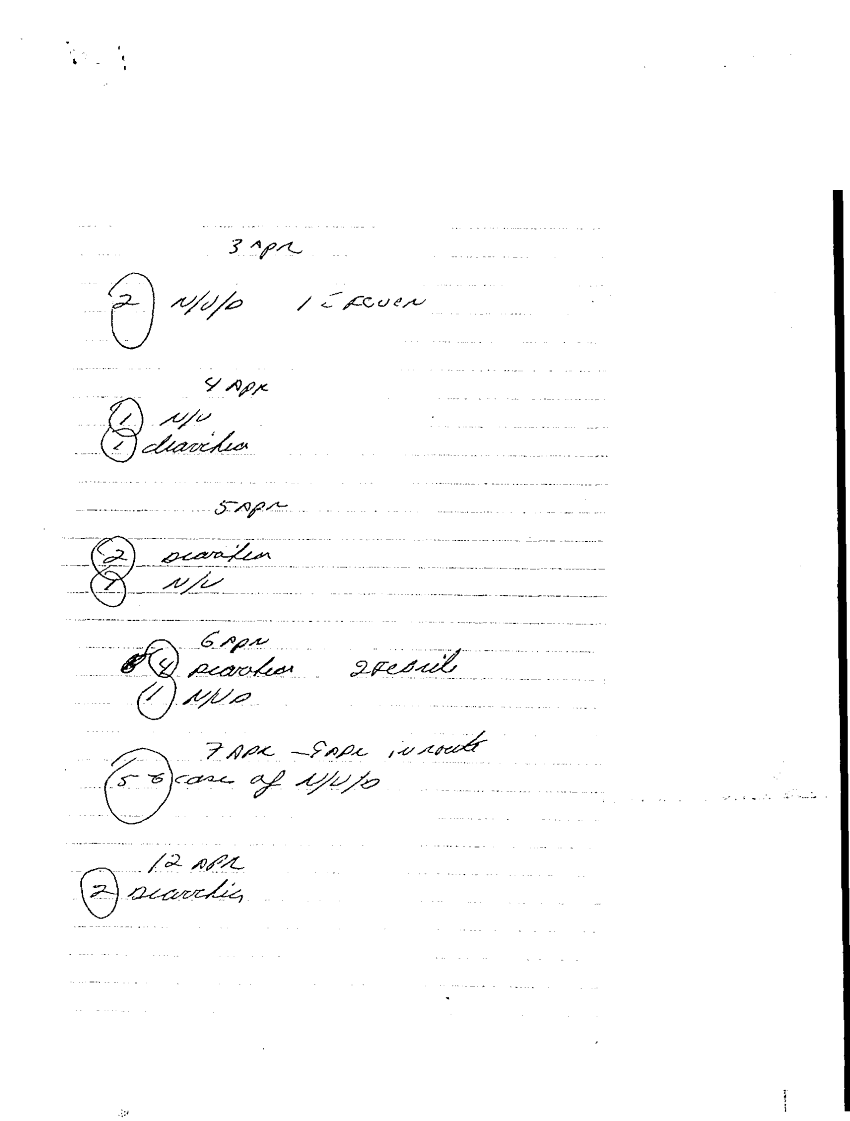 3 Apr
2 N/V/D 1 c̄ FEVER
4 Apr
1 N/V
1 diarrhea
5 Apr
2 Diarrhea
1 N/V
6 Apr
4 Diarrhea 2 Febrile
1 N/V/D
7 APR – 9 APR in route
5-6 case of N/V/D
12 APR
2 Diarrhea